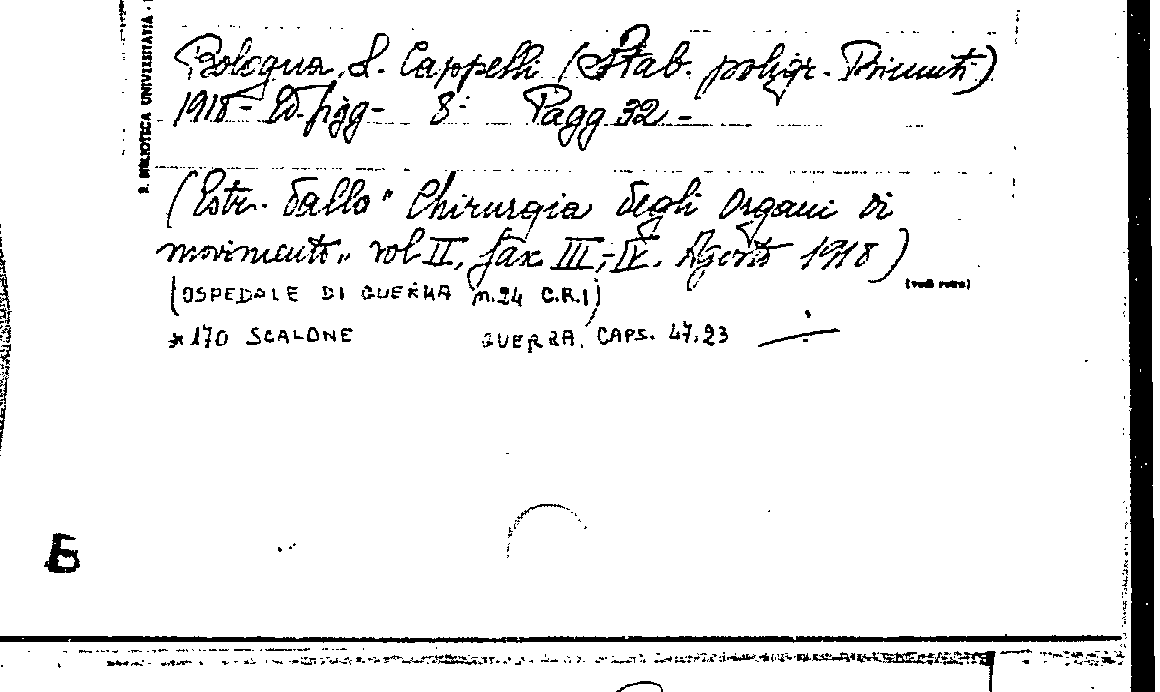 R. BIBLIOTECA UNIVERSITARIA -
Bologna, L. Cappelli (Stab. poligr. Riuniti)
1918 - Ed. figg - 8° Pagg 32 -
(Estr. dallo "Chirurgia degli organi di
movimento" vol II, fasc. III-IV. Agosto 1918)
(vedi retro)
(OSPEDALE DI GUERRA n. 24 C.R.I)
*170 SCALONE GUERRA, CAPS. 47.23